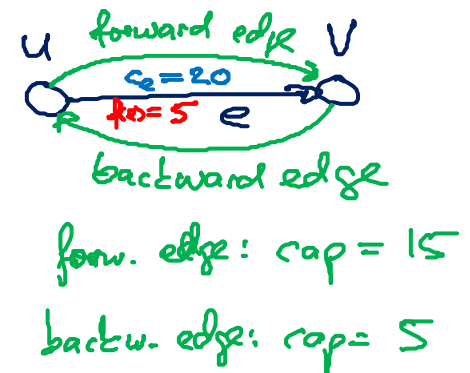 forward edge
u v
c_e = 20
f(e) = 5 e
backward edge
forw. edge: cap = 15
backw. edge: cap = 5